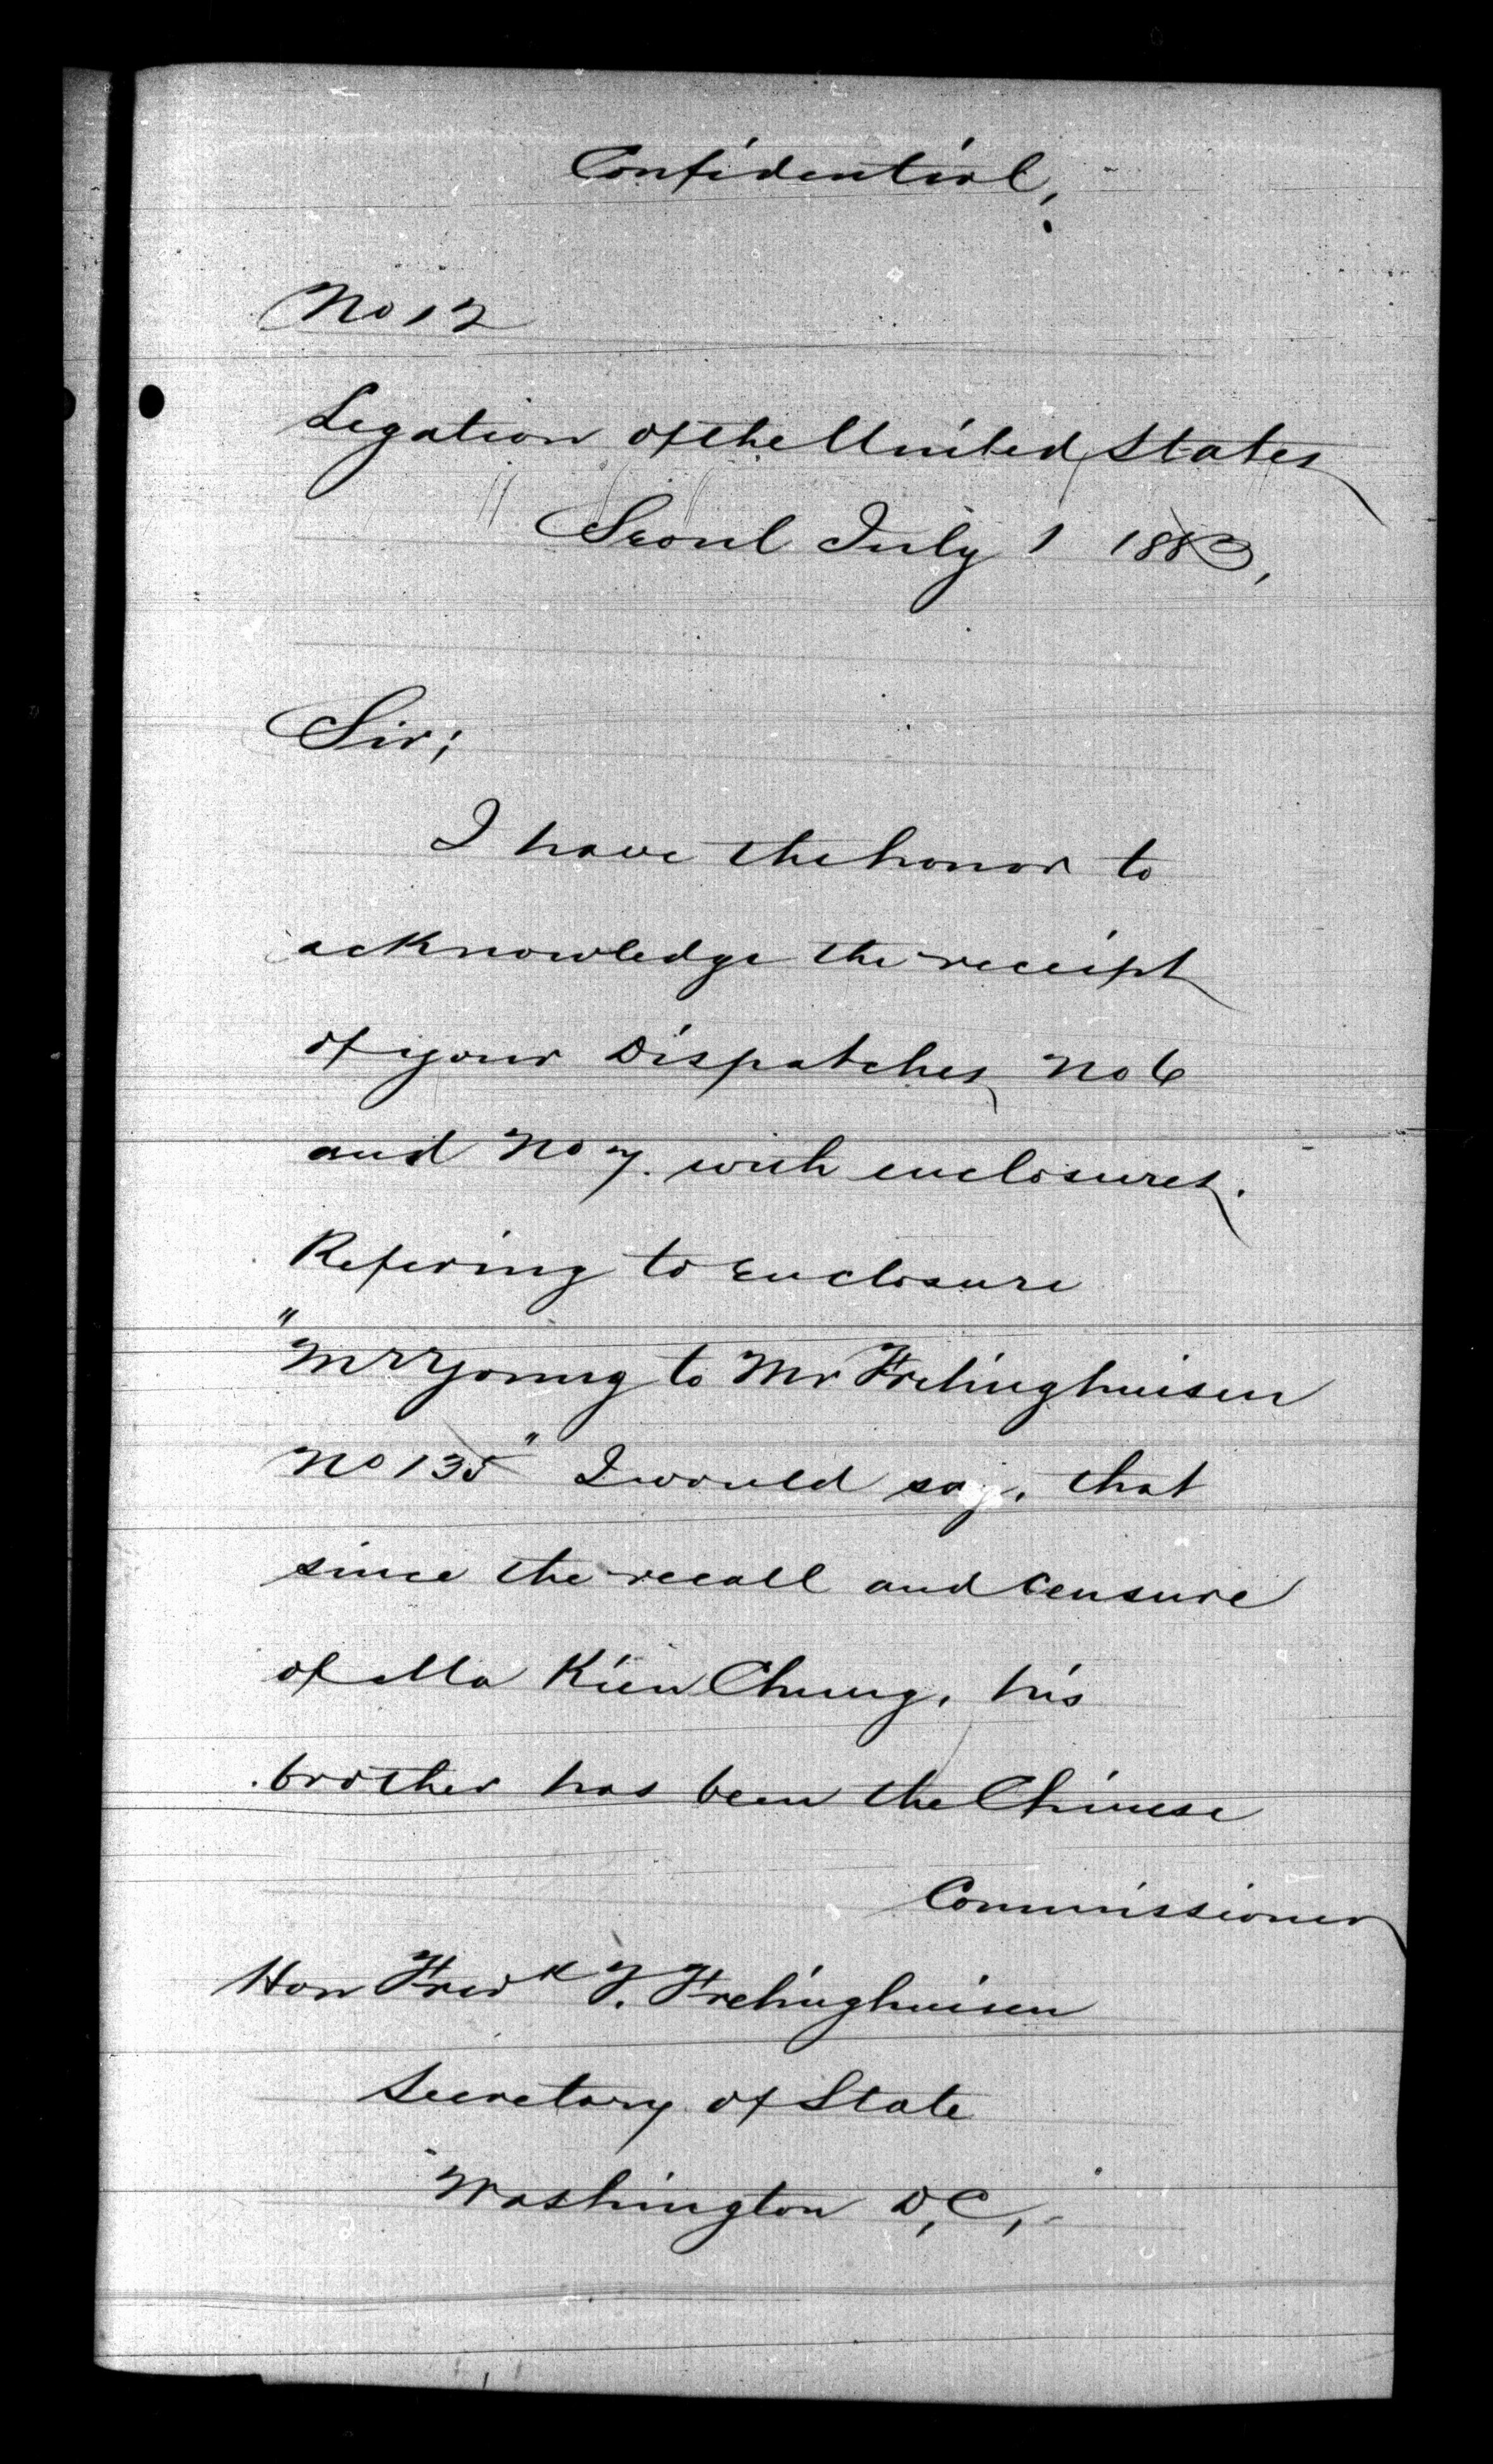 Confidential,
No 12
Legation of the United States
Seoul July 1 1883,
Sir;
I have the honor to
acknowledge the receipt
of your Dispatches No 6
and No 7. with enclosures.
Refering to Enclosure
"Mr Young to Mr Frelinghuisen
No 135" I would say, that
since the recall and censure
of Ma Kien Chung, his
brother has been the Chinese
Commissioner
Hon Fredk T. Frelinghuisen
Secretary of State
Washington D,C,